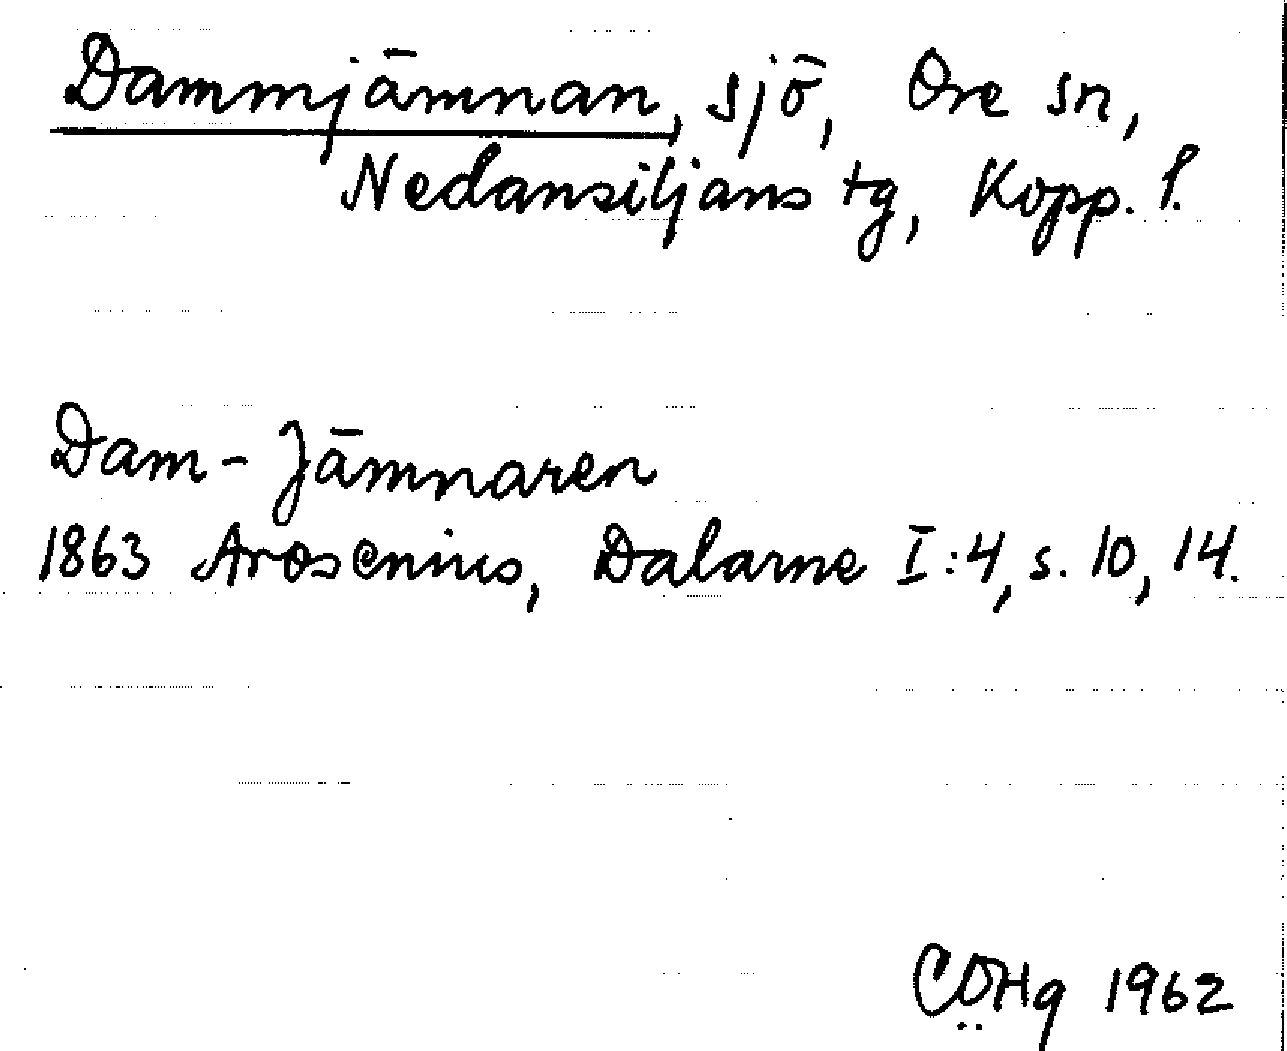 Dammjämnan, sjö, Ore sn,
Nedansiljans tg, Kopp. l.
Dam-Jämnaren
1863 Arosenius, Dalarne I:4, s. 10, 14.
CÖHg 1962